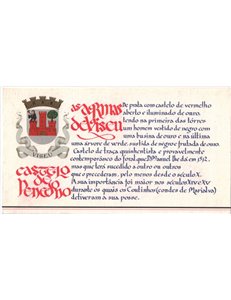 as armas
de Viseu
De prata com castelo de vermelho
aberto e iluminado de ouro,
tendo na primeira das tôrres
um homem vestido de negro com
uma buzina de ouro e na última
uma árvore de verde, sustida de negro e frutada de ouro.
Castelo de traça quinhentista e provavelmente
contemporâneo do foral que D. Manuel lhe dá em 1512,
mas que terá sucedido a outro ou outros
que o precederam, pelo menos desde o século X.
A sua importância foi maior nos séculos XIV e XV
durante os quais os Coutinhos (condes de Marialva)
detiveram a sua posse.
VISEU
castelo
de
Penedono